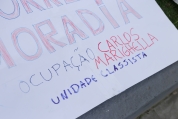 MORADIA
OCUPAÇÃO CARLOS
MARIGHELLA
UNIDADE CLASSISTA